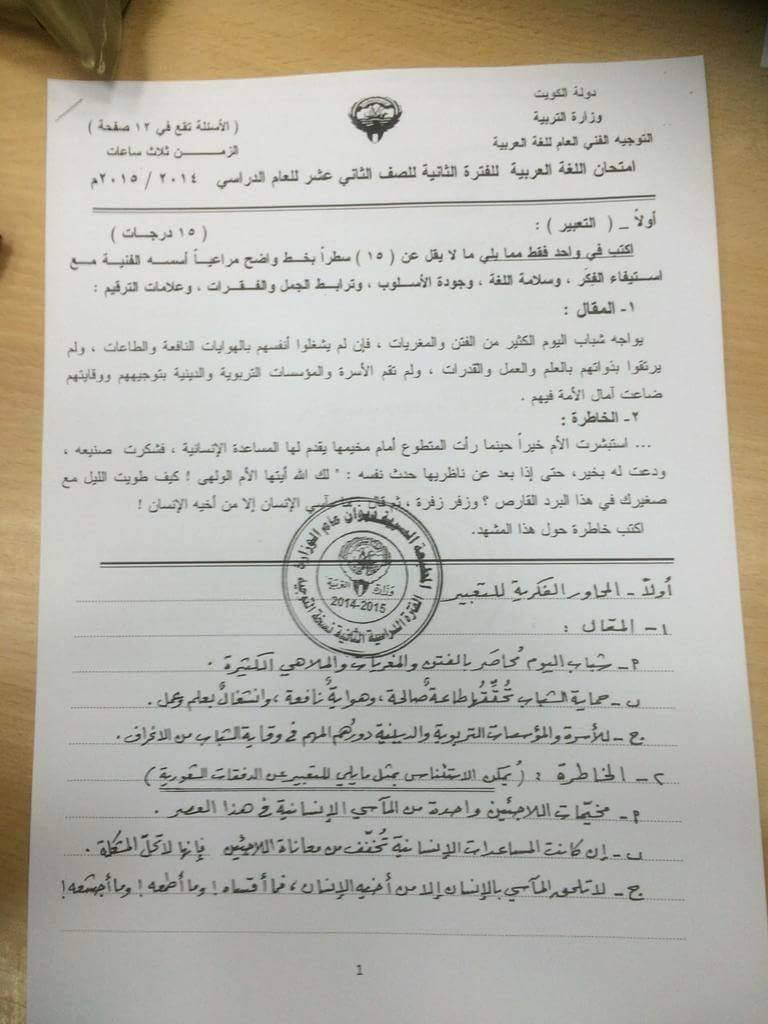 دولة الكويت
وزارة التربية
التوجيه الفني العام للغة العربية
( الأسئلة تقع في ١٢ صفحة )
الزمــــن ثلاث ساعات
امتحان اللغة العربية للفترة الثانية للصف الثاني عشر للعام الدراسي ٢٠١٤ / ٢٠١٥م
أولاً ــ ( التعبير ) :
( ١٥ درجــات )
اكتب في واحد فقط مما يلي ما لا يقل عن ( ١٥ ) سطراً بخط واضح مراعيــاً أسســه الفنيــة مــع
استيفاء الفِكَر ، وسلامة اللغة ، وجودة الأسـلوب ، وترابط الجمل والفـقـرات ، وعلامات الترقيم :
١- المقال :
يواجه شباب اليوم الكثير من الفتن والمغريات ، فإن لم يشغلوا أنفسهم بالهوايات النافعة والطاعات ، ولم
يرتقوا بذواتهم بالعلم والعمل والقدرات ، ولم تقم الأسرة والمؤسسات التربوية والدينية بتوجيههم ووقايتهم
ضاعت آمال الأمة فيهم .
٢- الخاطرة :
... استبشرت الأم خيراً حينما رأت المتطوع أمام مخيمها يقدم لها المساعدة الإنسانية ، فشكرت صنيعه ،
ودعت له بخير، حتى إذا بعد عن ناظريها حدث نفسه : " لك الله أيتها الأم الولهى ! كيف طويت الليل مع
صغيرك في هذا البرد القارص ؟ وزفر زفرة ، ثم قال آسي الإنسان إلا من أخيه الإنسان !
اكتب خاطرة حول هذا المشهد.
المطبعة السرية ديوان عام الوزارة
وزارة التربية
2014-2015
الفترة الدراسية الثانية نسخة التوجيه
أولاً - المحاور الفكرية للتعبير
١ - المقال :
٢- شباب اليوم مُحاصَر بالفتن والمغريات والملاهي الكثيرة .
ب - حماية الشباب تُحقِّقُها طاعةٌ صالحة ، وهوايةٌ نافعة ، وانشغالٌ بعلم وعمل .
ج - للأسرة والمؤسسات التربوية والدينية دورُهم المهم في وقاية الشباب من الانحراف .
٢ - الخاطرة : ( يُمكن الاستئناس بمثل مايلي للتعبير عن الدفقات الشعورية )
٢- مخيّمات اللاجئين واحدة من المآسي الإنسانية في هذا العصر .
ب - إن كانت المساعدات الإنسانية تُخفّف من معاناة اللاجئين فإنها لا تحلّ المشكلة .
ج - لا تلحق المآسي بالإنسان إلا من أخيه الإنسان ، فما أقساه ! وما أطمعه ! وما أجشعه !
1